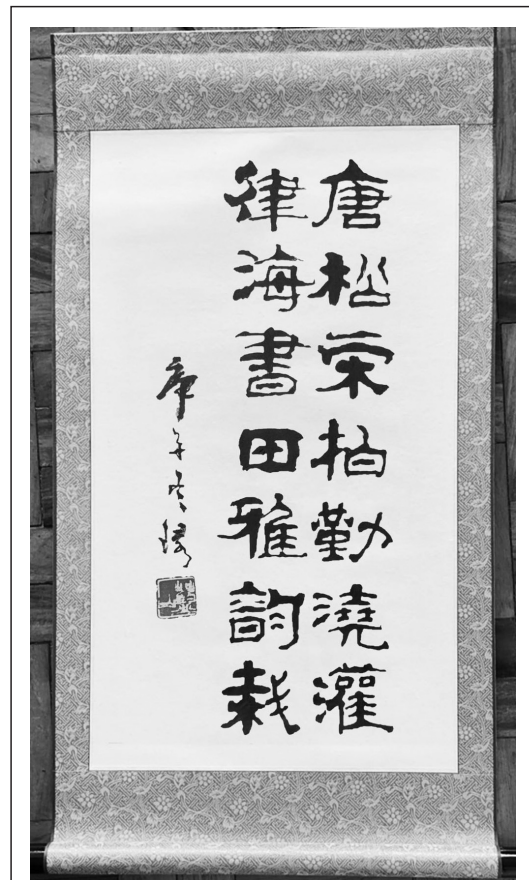 唐松宋柏勤澆灌
律海書田雅韵栽
庚午